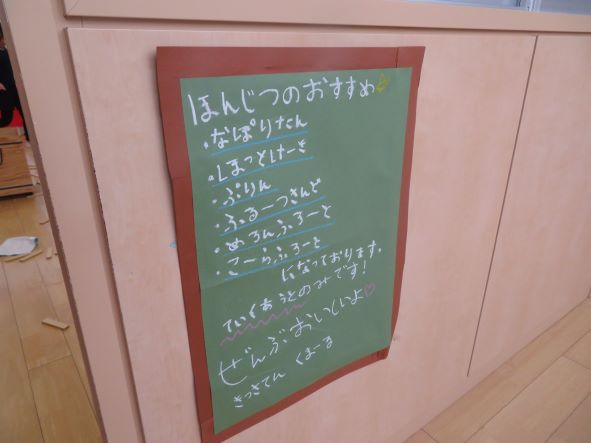 ほんじつのおすすめ
・なぽりたん
・ほっとけーき
・ぷりん
・ふるーつさんど
・めろんふろーと
・こーらふろーと
になっております。
ていくあうとのみです!
ぜんぶおいしいよ♡
きっさてん くまーる